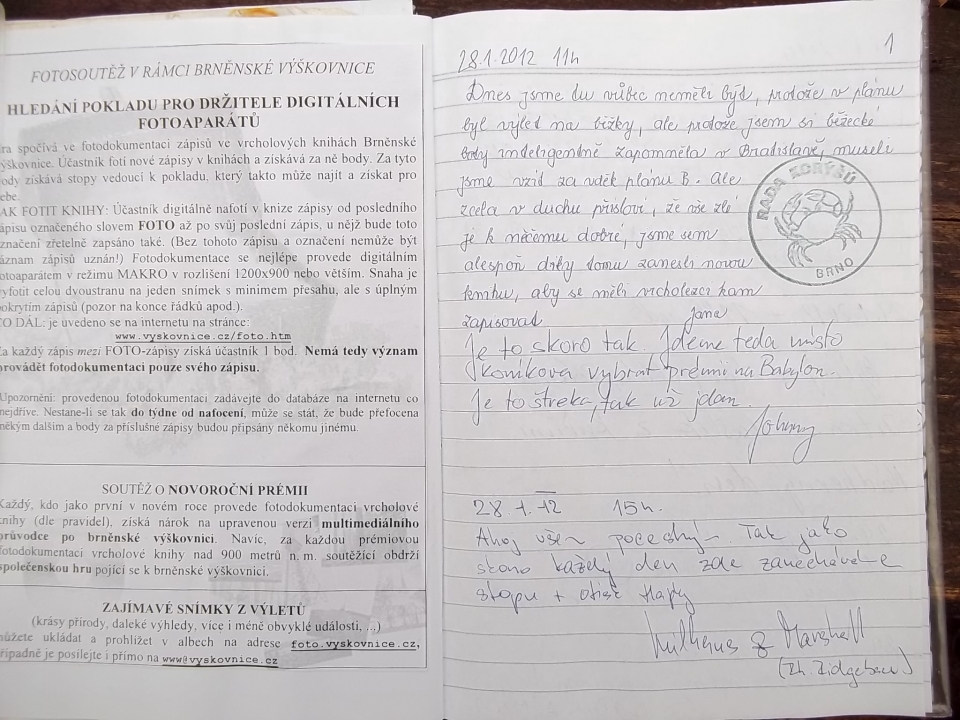 FOTOSOUTĚŽ V RÁMCI BRNĚNSKÉ VÝŠKOVNICE
HLEDÁNÍ POKLADU PRO DRŽITELE DIGITÁLNÍCH
FOTOAPARÁTŮ
ra spočívá ve fotodokumentaci zápisů ve vrcholových knihách Brněnské
ýškovnice. Účastník fotí nové zápisy v knihách a získává za ně body. Za tyto
ody získává stopy vedoucí k pokladu, který takto může najít a získat pro
ebe.
AK FOTIT KNIHY: Účastník digitálně nafotí v knize zápisy od posledního
ápisu označeného slovem FOTO až po svůj poslední zápis, u nějž bude toto
značení zřetelně zapsáno také. (Bez tohoto zápisu a označení nemůže být
áznam zápisů uznán!) Fotodokumentace se nejlépe provede digitálním
otoaparátem v režimu MAKRO v rozlišení 1200x900 nebo větším. Snaha je
yfotit celou dvoustranu na jeden snímek s minimem přesahu, ale s úplným
okrytím zápisů (pozor na konce řádků apod.).
O DÁL: je uvedeno se na internetu na stránce:
www.vyskovnice.cz/foto.htm
a každý zápis mezi FOTO-zápisy získá účastník 1 bod. Nemá tedy význam
rovádět fotodokumentaci pouze svého zápisu.
Upozornění: provedenou fotodokumentaci zadávejte do databáze na internetu co
nejdříve. Nestane-li se tak do týdne od nafocení, může se stát, že bude přefocena
někým dalším a body za příslušné zápisy budou připsány někomu jinému.
SOUTĚŽ O NOVOROČNÍ PRÉMII
Každý, kdo jako první v novém roce provede fotodokumentaci vrcholové
knihy (dle pravidel), získá nárok na upravenou verzi multimediálního
průvodce po brněnské výškovnici. Navíc, za každou prémiovou
fotodokumentaci vrcholové knihy nad 900 metrů n. m. soutěžící obdrží
společenskou hru pojící se k brněnské výškovnici.
ZAJÍMAVÉ SNÍMKY Z VÝLETŮ
(krásy přírody, daleké výhledy, více i méně obvyklé události, ...)
můžete ukládat a prohlížet v albech na adrese foto.vyskovnice.cz,
řípadně je posílejte i přímo na www@vyskovnice.cz
1
28.1.2012 11h
Dnes jsme tu vůbec neměli být, protože v plánu
byl výlet na běžky, ale protože jsem si běžecké
boty inteligentně zapomněla v Bratislavě, museli
jsme vzít za vděk plánu B. Ale
zcela v duchu přísloví, že vše zlé
je k něčemu dobré, jsme sem
alespoň díky tomu zanesli novou
knihu, aby se měli vrcholezci kam
zapisovat
Jana
RADA KORÝŠŮ
BRNO
Je to skoro tak. Jdeme teda místo
Koníkova vybrat prémii na Babylon.
Je to štreka, tak už jdem.
Johnny
28.1.12 15h.
Ahoj všem pocestným. Tak jako
skoro každý den zde zanecháváme
stopu + otisk tlapky
& Marshall